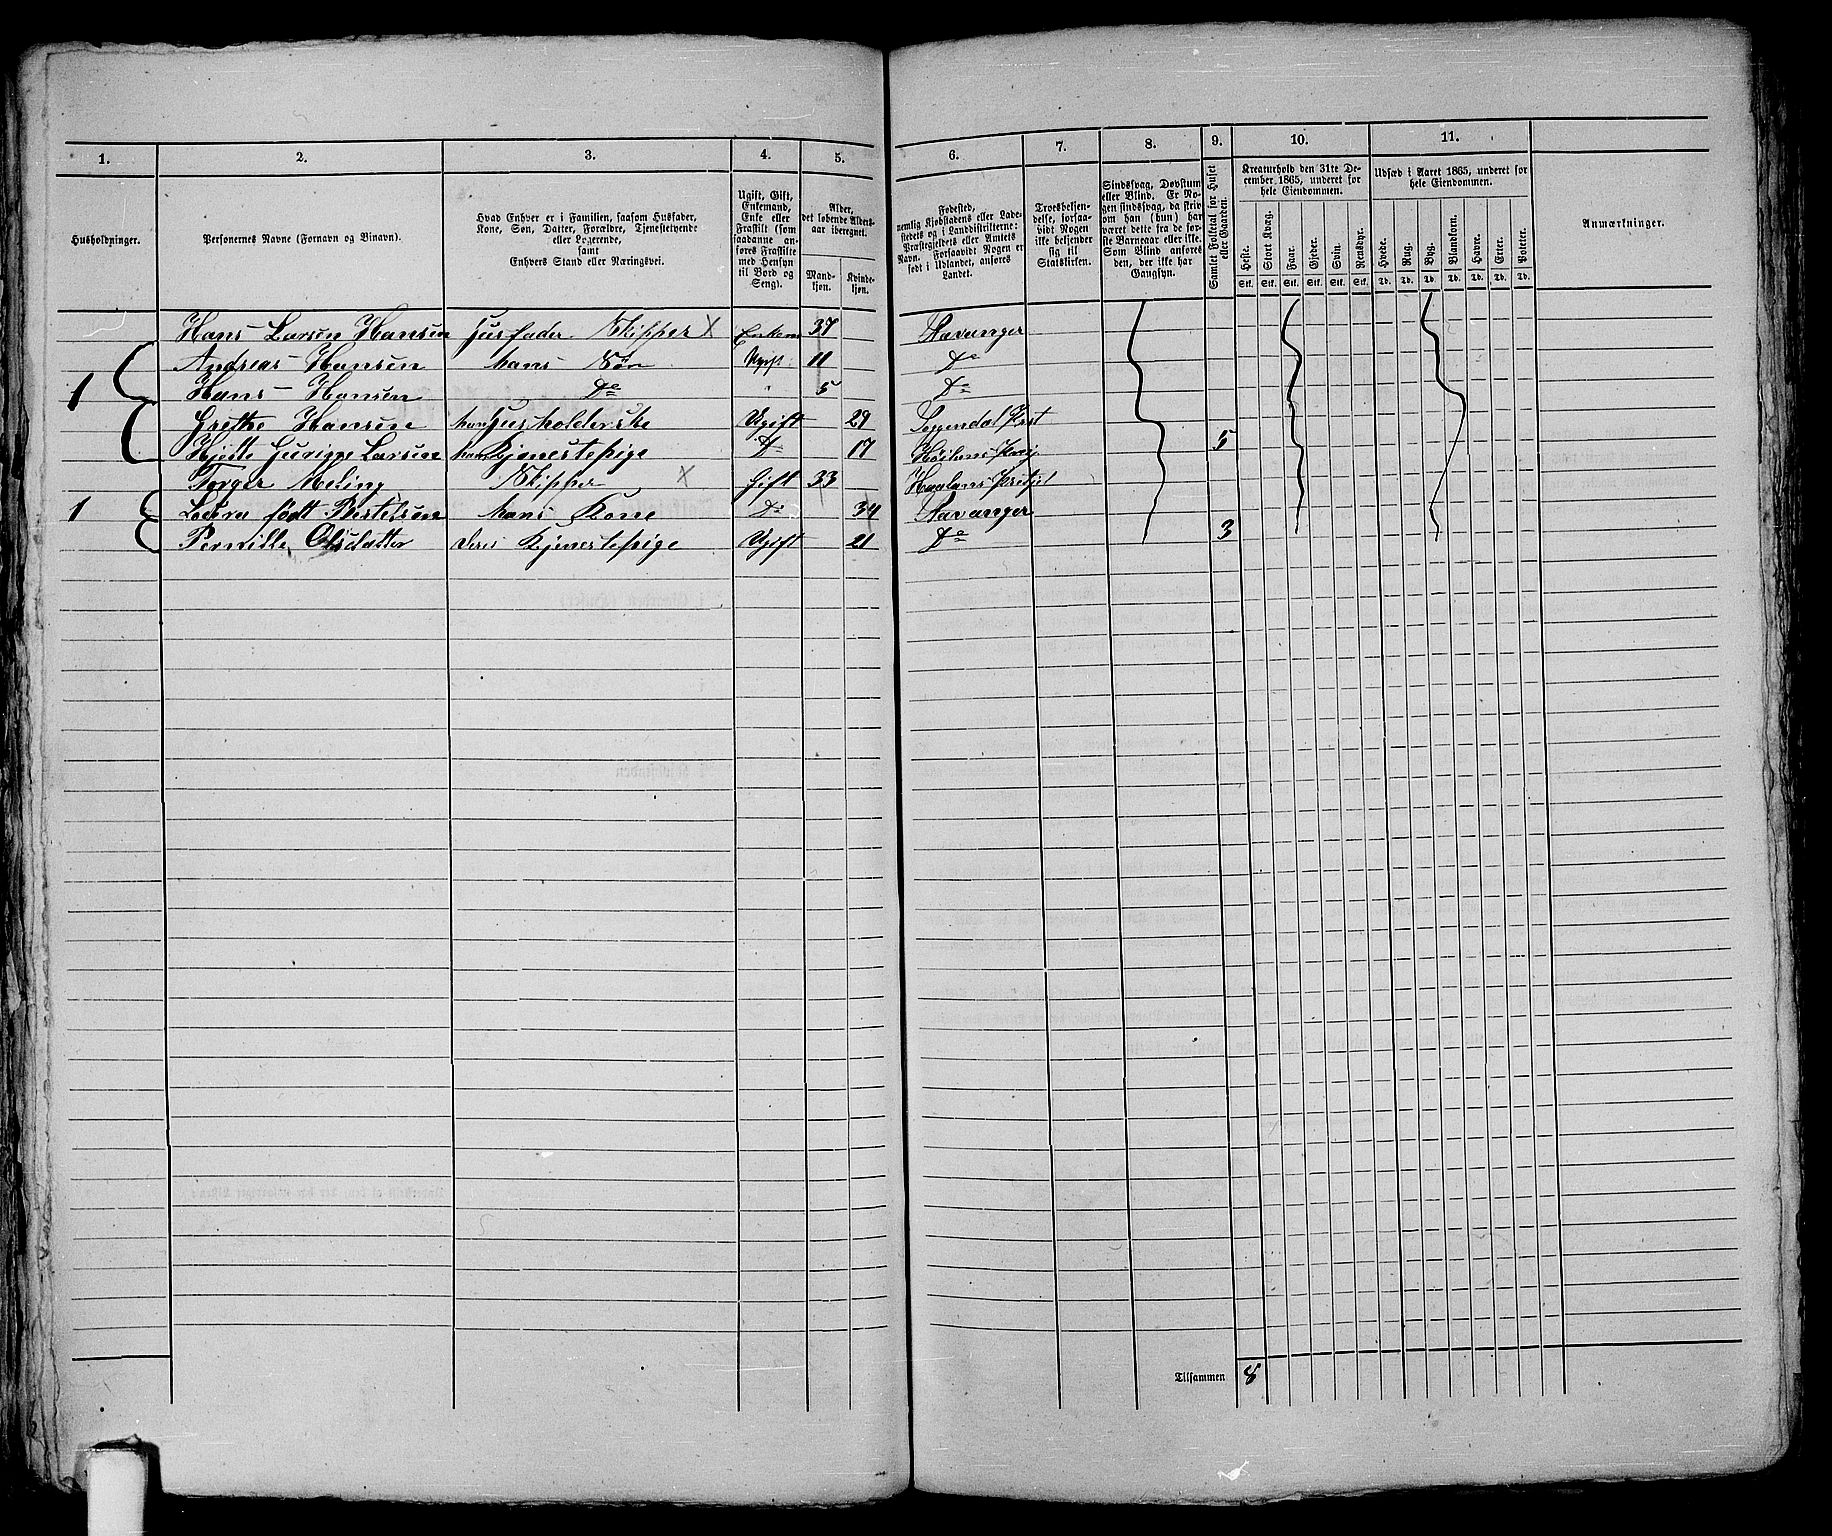 1. 2. 3. 4. 5. 6. 7. 8. 9. 10. 11.
Husholdninger.
Personernes Navne (Fornavn og Binavn).
Hvad Enhver er i Familien, saasom Husfader,
Kone, Søn, Datter, Forældre, Tjenestetyende
eller Logerende,
samt
Enhvers Stand eller Næringsvei.
Ugift, Gift,
Enkemand,
Enke eller
Fraskilt (som
saadanne an-
føres Fraskilte
med Hensyn
til Bord og
Seng).
Alder,
det løbende Alders-
aar iberegnet.
Mand-
kjøn.
Kvinde-
kjøn.
Fødested,
nemlig Kjøbstadens eller Lade-
stedets og i Landdistrikterne:
Præstegjeldets eller Amtets
Navn. Forsaavidt Nogen er
født i Udlandet, anføres
Landet.
Troesbekjen-
delse, forsaa-
vidt Nogen
ikke bekjender
sig til
Statskirken.
Sindssvag, Døvstum
eller Blind. Er No-
gen sindssvag, da skriv
om han (hun) har
været dette fra de før-
ste Barneaar eller ikke.
Som Blind anføres
den, der ikke har
Gangsyn.
Samlet Folketal for Huset
eller Gaarden.
Kreaturhold den 31te De-
cember 1865, underet for
hele Eiendommen.
Heste. Stort Kvæg. Faar. Gjeder. Svin. Rensdyr.
Stk. Stk. Stk. Stk. Stk. Stk.
Udsæd i Aaret 1865, underet for
hele Eiendommen.
Hvede. Rug. Byg. Blandkorn. Havre. Erter. Poteter.
Td. Td. Td. Td. Td. Td. Td.
Anmærkninger.
Hans Larsen Hansen Husfader Skipper x Enkem 37 Stavanger
Andreas Hansen hans Søn Ugift 11 Do
1 Hans Hansen Do " 5 Do
Grethe Hansen hans Husholderske Ugift 29
Larsen hans Tjenestepige Do 17 5
Torger Meling Skipper x Gift 33
1 født Bertelsen hans Kone Do 34 Stavanger
Pernille Olsdatter deres Tjenestepige Ugift 21 Do 3
Tilsammen 8